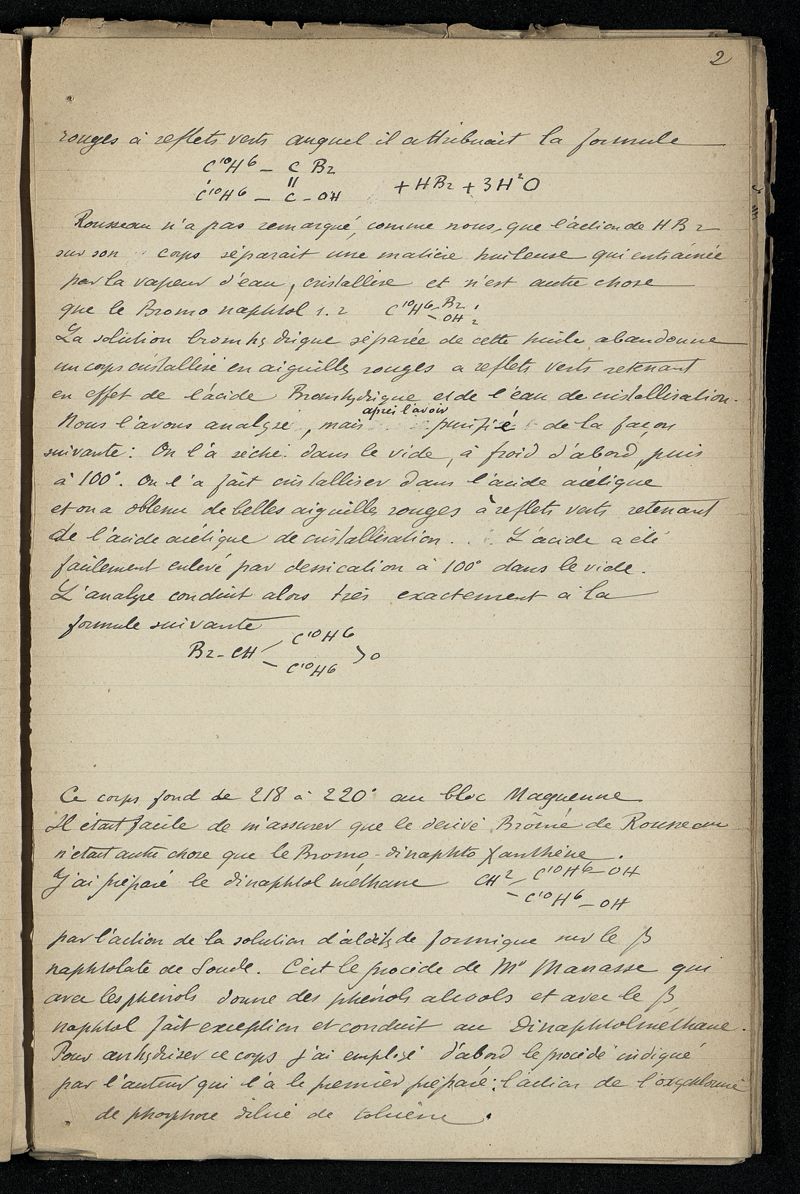 2
rouges à reflets verts auquel il attribuait la formule
C¹⁰H⁶ – C Br
C¹⁰H⁶ – C – OH + HBr + 3H²O
Rousseau n'a pas remarqué, comme nous, que l'action de HBr
sur son corps séparait une matière huileuse qui entraînée
par la vapeur d'eau, cristallise et n'est autre chose
que le Bromo naphtol 1.2 C¹⁰H⁶ – Br 1 – OH 2
La solution bromhydrique séparée de cette huile abandonne
un corps cristallisé en aiguilles rouges a reflets verts retenant
en effet de l'acide Bromhydrique et de l'eau de cristallisation.
Nous l'avons analysé, mais après l'avoir purifié de la façon
suivante: On l'a séché dans le vide, à froid d'abord, puis
à 100°. On l'a fait cristalliser dans l'acide acétique
et on a obtenu de belles aiguilles rouges à reflets verts retenant
de l'acide acétique de cristallisation. L'acide a été
facilement enlevé par dessication à 100° dans le vide.
L'analyse conduit alors très exactement à la
formule suivante
Br – CH C¹⁰H⁶ C¹⁰H⁶ > O
Ce corps fond de 218 à 220° au bloc Maquenne
Il était facile de m'assurer que le dérivé Brômé de Rousseau
n'était autre chose que le Bromo-dinaphto Xanthène.
J'ai préparé le dinaphtol méthane CH² – C¹⁰H⁶ – OH
– C¹⁰H⁶ – OH
par l'action de la solution d'aldéhyde formique sur le β
naphtolate de Soude. C'est le procédé de Mr Manasse qui
avec les phénols donne des phénols alcools et avec le β
naphtol fait exception et conduit au Dinaphtolméthane.
Pour anhydriser ce corps j'ai employé d'abord le procédé indiqué
par l'auteur qui l'a le premier préparé: l'action de l'oxychlorure
de phosphore dilué de toluène.